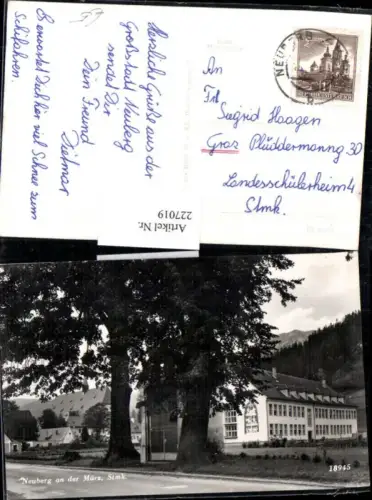 Herzliche Grüße aus der
Großstadt Neuberg
sendet Dir
Dein Freund
Dietmar
Es erwartet Dich hier viel Schnee zum
Schifahren.
An
Frl. Sigrid Haagen
Graz Plüddemanng 30
Landesschülerheim 4
Stmk.
NEUBERG
Artikel Nr.
227019
Neuberg an der Mürz, Stmk.
18945